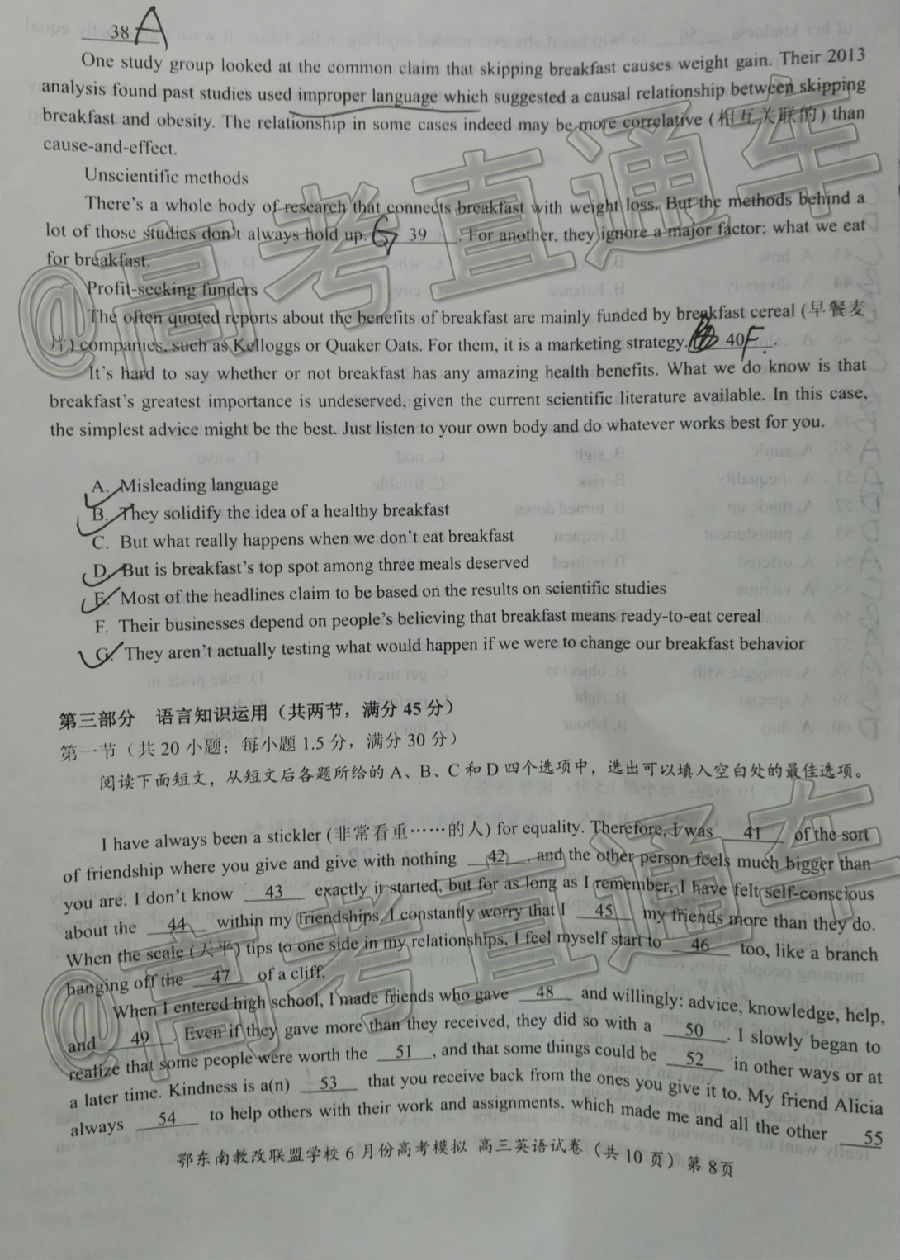 38 A
One study group looked at the common claim that skipping breakfast causes weight gain. Their 2013
analysis found past studies used improper language which suggested a causal relationship between skipping
breakfast and obesity. The relationship in some cases indeed may be more correlative (相互关联的) than
cause-and-effect.
Unscientific methods
There's a whole body of research that connects breakfast with weight loss. But the methods behind a
lot of those studies don't always hold up. G 39 . For another, they ignore a major factor: what we eat
for breakfast.
Profit-seeking funders
The often quoted reports about the benefits of breakfast are mainly funded by breakfast cereal (早餐麦
片) companies, such as Kelloggs or Quaker Oats. For them, it is a marketing strategy. 40 F .
It's hard to say whether or not breakfast has any amazing health benefits. What we do know is that
breakfast's greatest importance is undeserved, given the current scientific literature available. In this case,
the simplest advice might be the best. Just listen to your own body and do whatever works best for you.
A. Misleading language
B. They solidify the idea of a healthy breakfast
C. But what really happens when we don't eat breakfast
D. But is breakfast's top spot among three meals deserved
E. Most of the headlines claim to be based on the results on scientific studies
F. Their businesses depend on people's believing that breakfast means ready-to-eat cereal
G. They aren't actually testing what would happen if we were to change our breakfast behavior
第三部分 语言知识运用（共两节，满分 45 分）
第一节（共 20 小题；每小题 1.5 分，满分 30 分）
阅读下面短文，从短文后各题所给的 A、B、C 和 D 四个选项中，选出可以填入空白处的最佳选项。
I have always been a stickler (非常看重……的人) for equality. Therefore, I was 41 of the sort
of friendship where you give and give with nothing 42 , and the other person feels much bigger than
you are. I don't know 43 exactly it started, but for as long as I remember, I have felt self-conscious
about the 44 within my friendships. I constantly worry that I 45 my friends more than they do.
When the scale (天平) tips to one side in my relationships, I feel myself start to 46 too, like a branch
hanging off the 47 of a cliff.
When I entered high school, I made friends who gave 48 and willingly: advice, knowledge, help,
and 49 . Even if they gave more than they received, they did so with a 50 . I slowly began to
realize that some people were worth the 51 , and that some things could be 52 in other ways or at
a later time. Kindness is a(n) 53 that you receive back from the ones you give it to. My friend Alicia
always 54 to help others with their work and assignments, which made me and all the other 55
鄂东南教改联盟学校 6 月份高考模拟 高三英语试卷（共 10 页）第 8页
@高考直通车
@高考直通车